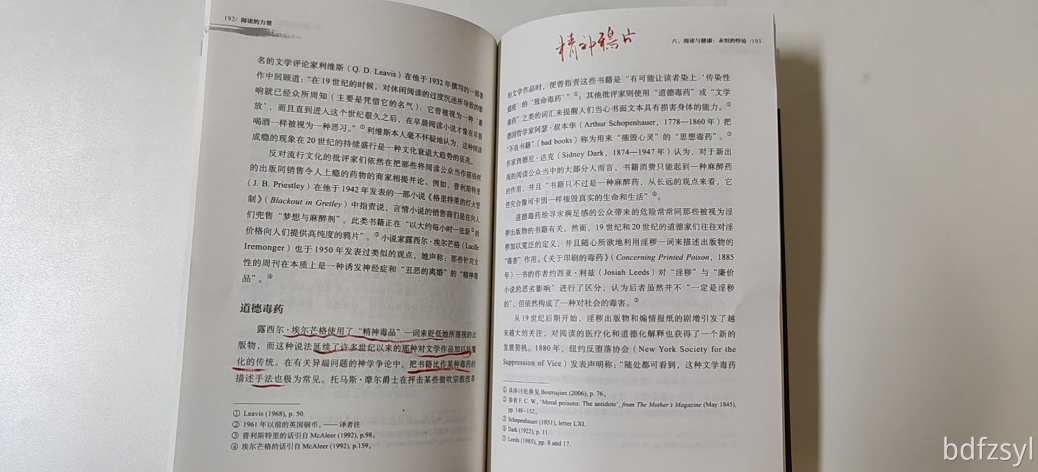 192/ 阅读的力量
名的文学评论家利维斯（Q. D. Leavis）在他于1932年撰写的一部著
作中回顾道：“在19世纪的时候，对休闲阅读的过度沉迷所导致的影
响就已经众所周知（主要是凭借它的名气）：它曾被视为一种‘豪
放’，而且直到进入这个世纪很久之后，在早晨阅读小说才像在早晨
喝酒一样被视为一种恶习。”①利维斯本人毫不怀疑地认为，这种阅读
成瘾的现象在20世纪的持续盛行是一种文化衰退大趋势的征兆。
反对流行文化的批评家们依然在把那些将阅读公众当作
的出版同销售令人上瘾的药物的商家相提并论。例如，普利斯特里
（J. B. Priestley）在他于1942年发表的一部小说《格里特来的灯火管
制》（Blackout in Gretley）中指责说，言情小说的销售商们是在向人
们兜售“梦想与麻醉剂”。此类书籍正在“以大约每小时一法新②的
价格向人们提供高纯度的鸦片”。③小说家露西尔·埃尔芒格（Lucille
Iremonger）也于1950年发表过类似的观点，她声称：那些针对女
性的周刊在本质上是一种诱发神经症和“丑恶的离婚”的“精神毒
品”。④
道德毒药
露西尔·埃尔芒格使用了“精神毒品”一词来贬低她所蔑视的出
版物，而这种说法延续了许多世纪以来的那种对文学作品加以妖魔
化的传统。在有关异端问题的神学争论中，把书籍比作某种毒药的
描述手法也极为常见。托马斯·摩尔爵士在抨击某些鼓吹宗教改革
① Leavis (1968), p. 50.
② 1961年以前的英国铜币。——译者注
③ 普利斯特里的话引自 McAleer (1992), p.98。
④ 埃尔芒格的话引自 McAleer (1992), p.159。
精神鸦片
六、阅读与健康：永恒的悖论 /193
的文学作品时，便曾指责这些书籍是“有可能让读者染上‘传染性
瘟疫’的‘致命毒药’”①；其他批评家则使用“道德毒药”或“文学
毒药”之类的词汇来提醒人们当心书面文本具有损害身体的能力。②
德国哲学家阿瑟·叔本华（Arthur Schopenhauer，1778—1860年）把
“不良书籍”（bad books）称为用来“摧毁心灵”的“思想毒药”。③
作家西德尼·达克（Sidney Dark，1874—1947年）认为，对于新出
现的阅读公众当中的大部分人而言，书籍消费只能起到一种麻醉药
的作用，并且“书籍只不过是一种麻醉药，从长远的观点来看，它
终究会像可卡因一样摧毁真实的生命和生活”④。
道德毒药给寻求满足感的公众带来的危险常常同那些被视为淫
秽出版物的书籍有关。然而，19世纪和20世纪的道德家们往往对淫
秽加以宽泛的定义，并且随心所欲地利用淫秽一词来描述出版物的
“毒害”作用。《关于印刷的毒药》（Concerning Printed Poison，1885
年）一书的作者约西亚·利兹（Josiah Leeds）对“淫秽”与“廉价
小说的恶劣影响”进行了区分，认为后者虽然并不“一定是淫秽
的”，但依然构成了一种对社会的毒害。⑤
从19世纪后期开始，淫秽出版物和煽情报纸的剧增引发了越
来越大的关注，对阅读的医疗化和道德化解释也获得了一个新的
发展契机。1880年，纽约反堕落协会（New York Society for the
Suppression of Vice）发表声明称：“随处都可看到，这种文学毒药
① 具体讨论参见 Bosmajian (2006), p. 76。
② 参看 F. C. W., ‘Moral poisons: The antidote’, from The Mother’s Magazine (May 1845),
pp. 148–152.。
③ Schopenhauer (1851), letter LXI.
④ Dark (1922), p. 11.
⑤ Leeds (1985), pp. 8 and 17.
bdfzsyl